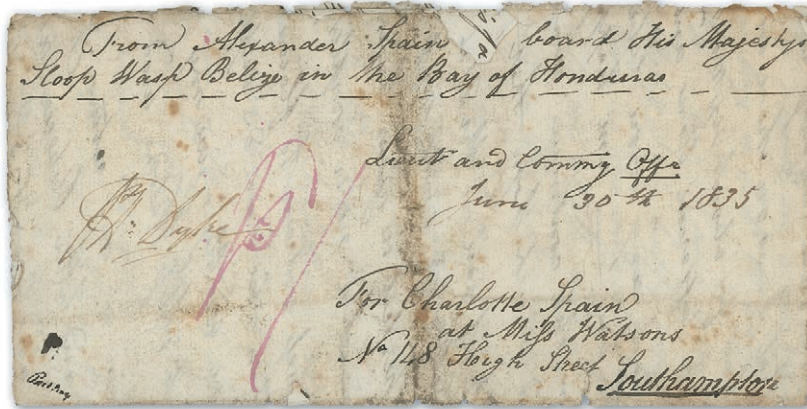 From Alexander Spain board His Majestys
Sloop Wasp Belize in the Bay of Honduras
Lieut and Commg Offr
June 30th 1835
Dyke
For Charlotte Spain
at Miſs Watsons
No 148 High Street
Southampton